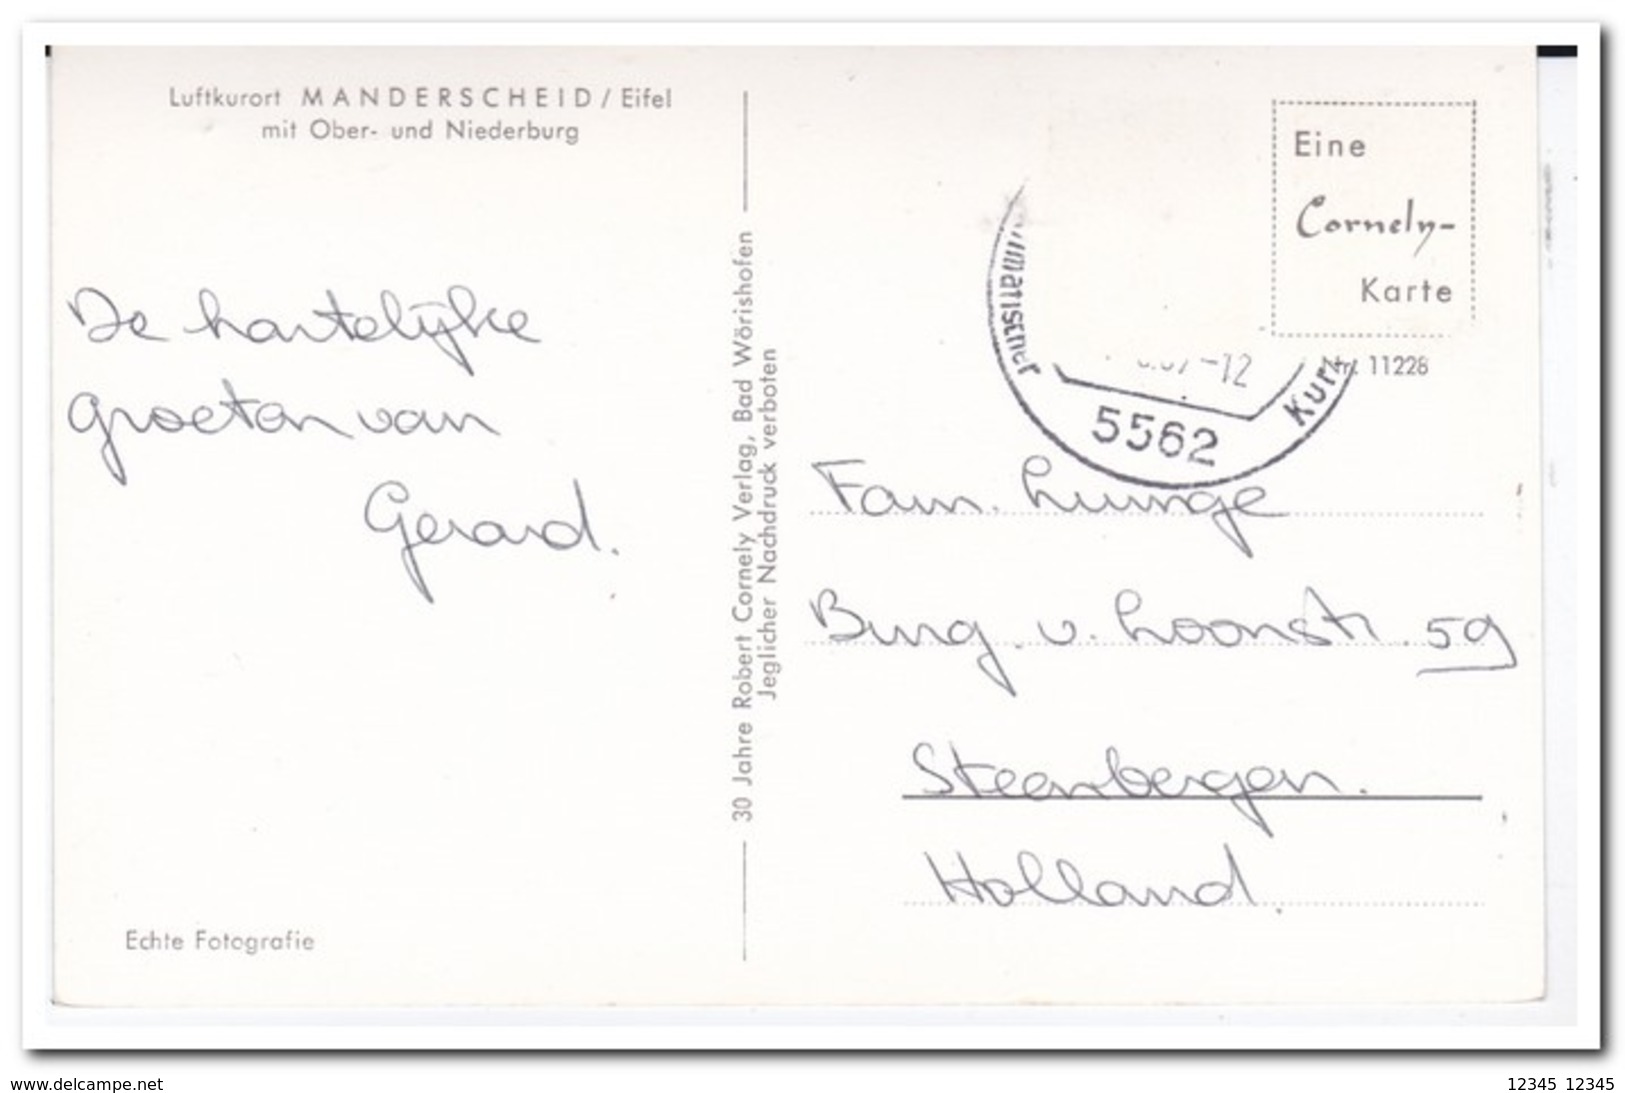 Luftkurort MANDERSCHEID / Eifel
mit Ober- und Niederburg
De hartelijke
groeten van
Gerard.
Echte Fotografie
30 Jahre Robert Cornely Verlag, Bad Wörishofen
Jeglicher Nachdruck verboten
Eine
Cornely-
Karte
Nr. 11228
-12
5562
Kur
Fam.
Burg. v. Loonstr. 59
Steenbergen.
Holland.
www.delcampe.net
12345 12345